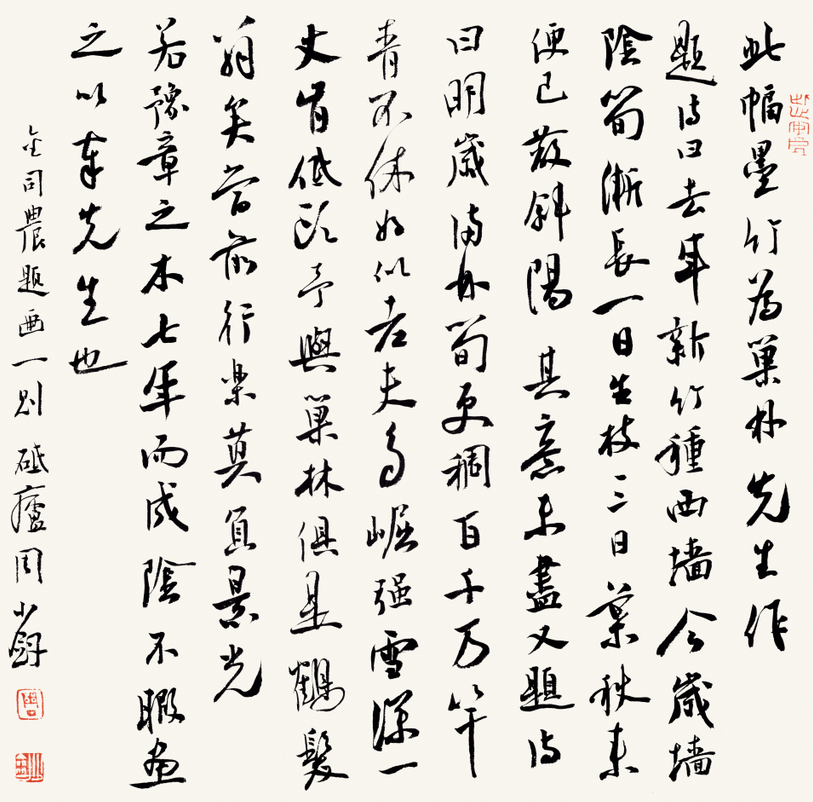 此幅墨竹為巢林先生作
題詩曰去年新竹種西墻今歲墻
陰筍漸長一日生枝三日葉秋來
便已蔽斜陽 其意未盡又題詩
曰明歲滿林筍更稠百千万竿
青不休好似老夫多崛强雪深一
丈肯低頭予與巢林俱是鶴髮
翁矣當前行樂莫負景光
若豫章之木七年而成陰不暇畫
之以奉先生也
金司農題畫一則 砥周